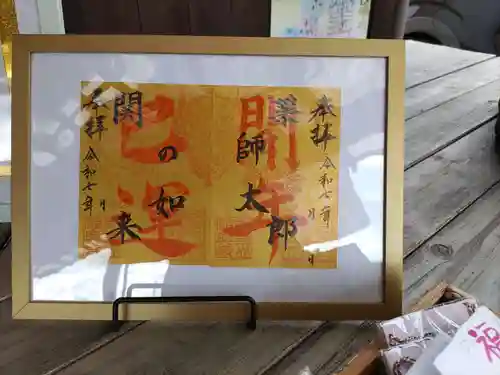 奉拝 令和七年 月 日
薬師太郎
開年
関の如来
巳運
奉拝 令和七年 月